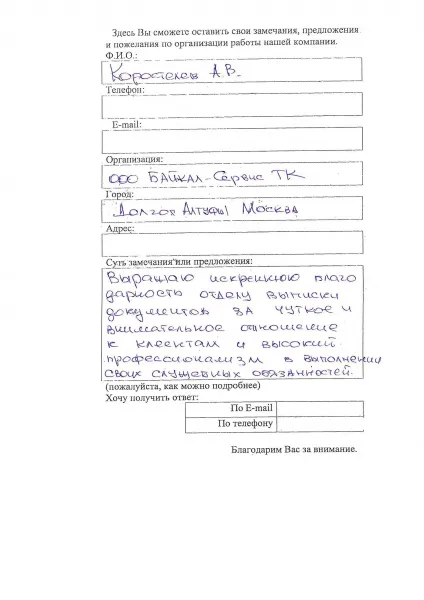 Здесь Вы сможете оставить свои замечания, предложения
и пожелания по организации работы нашей компании.
Ф.И.О.:
Коротелев А.В.
Телефон:
E-mail:
Организация:
ООО БАЙКАЛ-Сервис ТК
Город:
Долгоп Алтуфы Москва
Адрес:
Суть замечания или предложения:
Выражаю искреннюю благо
дарность отделу выписки
документов за чуткое и
внимательное отношение
к клиентам и высокий
профессионализм в выполнении
своих служебных обязанностей.
(пожалуйста, как можно подробнее)
Хочу получить ответ:
По E-mail
По телефону
Благодарим Вас за внимание.